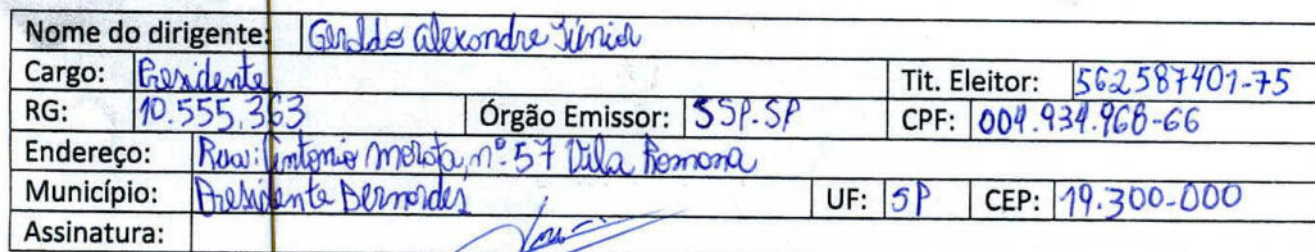 Nome do dirigente: Geraldo Alexandre Júnior
Cargo: Presidente Tit. Eleitor: 562587401-75
RG: 10.555.363 Órgão Emissor: SSP.SP CPF: 004.934.968-66
Endereço: Rua: Antonio Marota, nº 57 Vila Romana
Município: Presidente Bernardes UF: SP CEP: 19.300-000
Assinatura: